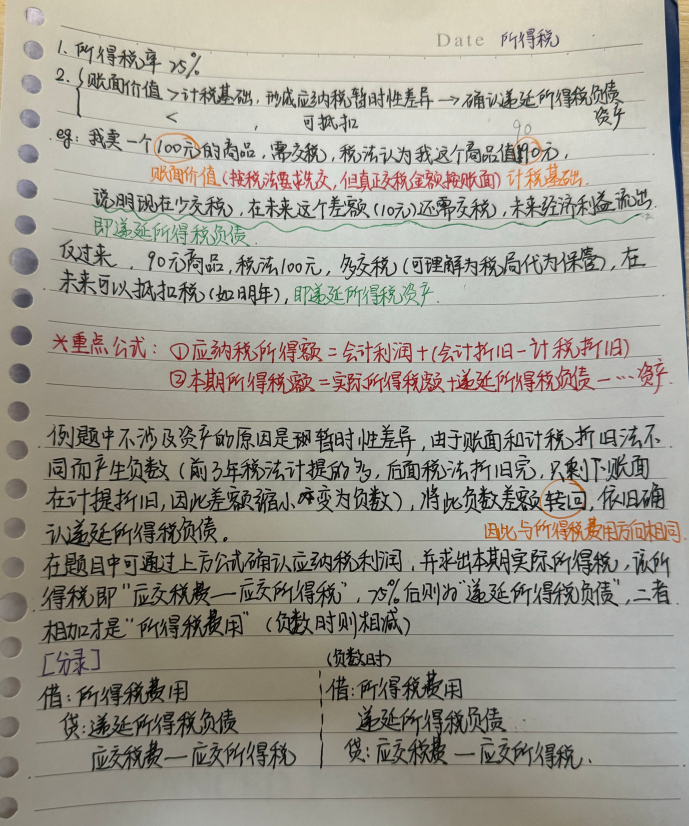 Date 所得税
1. 所得税率 25%
2. { 账面价值 > 计税基础, 形成应纳税暂时性差异 → 确认递延所得税负债
< , 可抵扣 资产
90
eg: 我卖一个100元的商品, 需交税, 税法认为我这个商品值90元,
账面价值(按税法要求先交, 但真正交税金额按账面) 计税基础.
说明现在少交税, 在未来这个差额(10元)还需交税, 未来经济利益流出.
即递延所得税负债.
反过来, 90元商品, 税法100元, 多交税(可理解为税局代为保管), 在
未来可以抵扣税(如明年), 即递延所得税资产.
*重点公式: ①应纳税所得额=会计利润+(会计折旧-计税折旧)
②本期所得税额=实际所得税额+递延所得税负债-…资产.
例题中不涉及资产的原因是现暂时性差异, 由于账面和计税折旧法不
同而产生负数(前3年税法计提的多, 后面税法折旧完, 只剩下账面
在计提折旧, 因此差额缩小 变为负数), 将此负数差额转回, 依旧确
认递延所得税负债。 因此与所得税费用方向相同.
在题目中可通过上方公式确认应纳税利润, 并求出本期实际所得税, 该所
得税即"应交税费—应交所得税", 25%后则为"递延所得税负债", 二者
相加才是"所得税费用"(负数时则相减)
[分录] (负数时)
借: 所得税费用 借: 所得税费用
贷: 递延所得税负债 递延所得税负债
应交税费—应交所得税 贷: 应交税费—应交所得税.